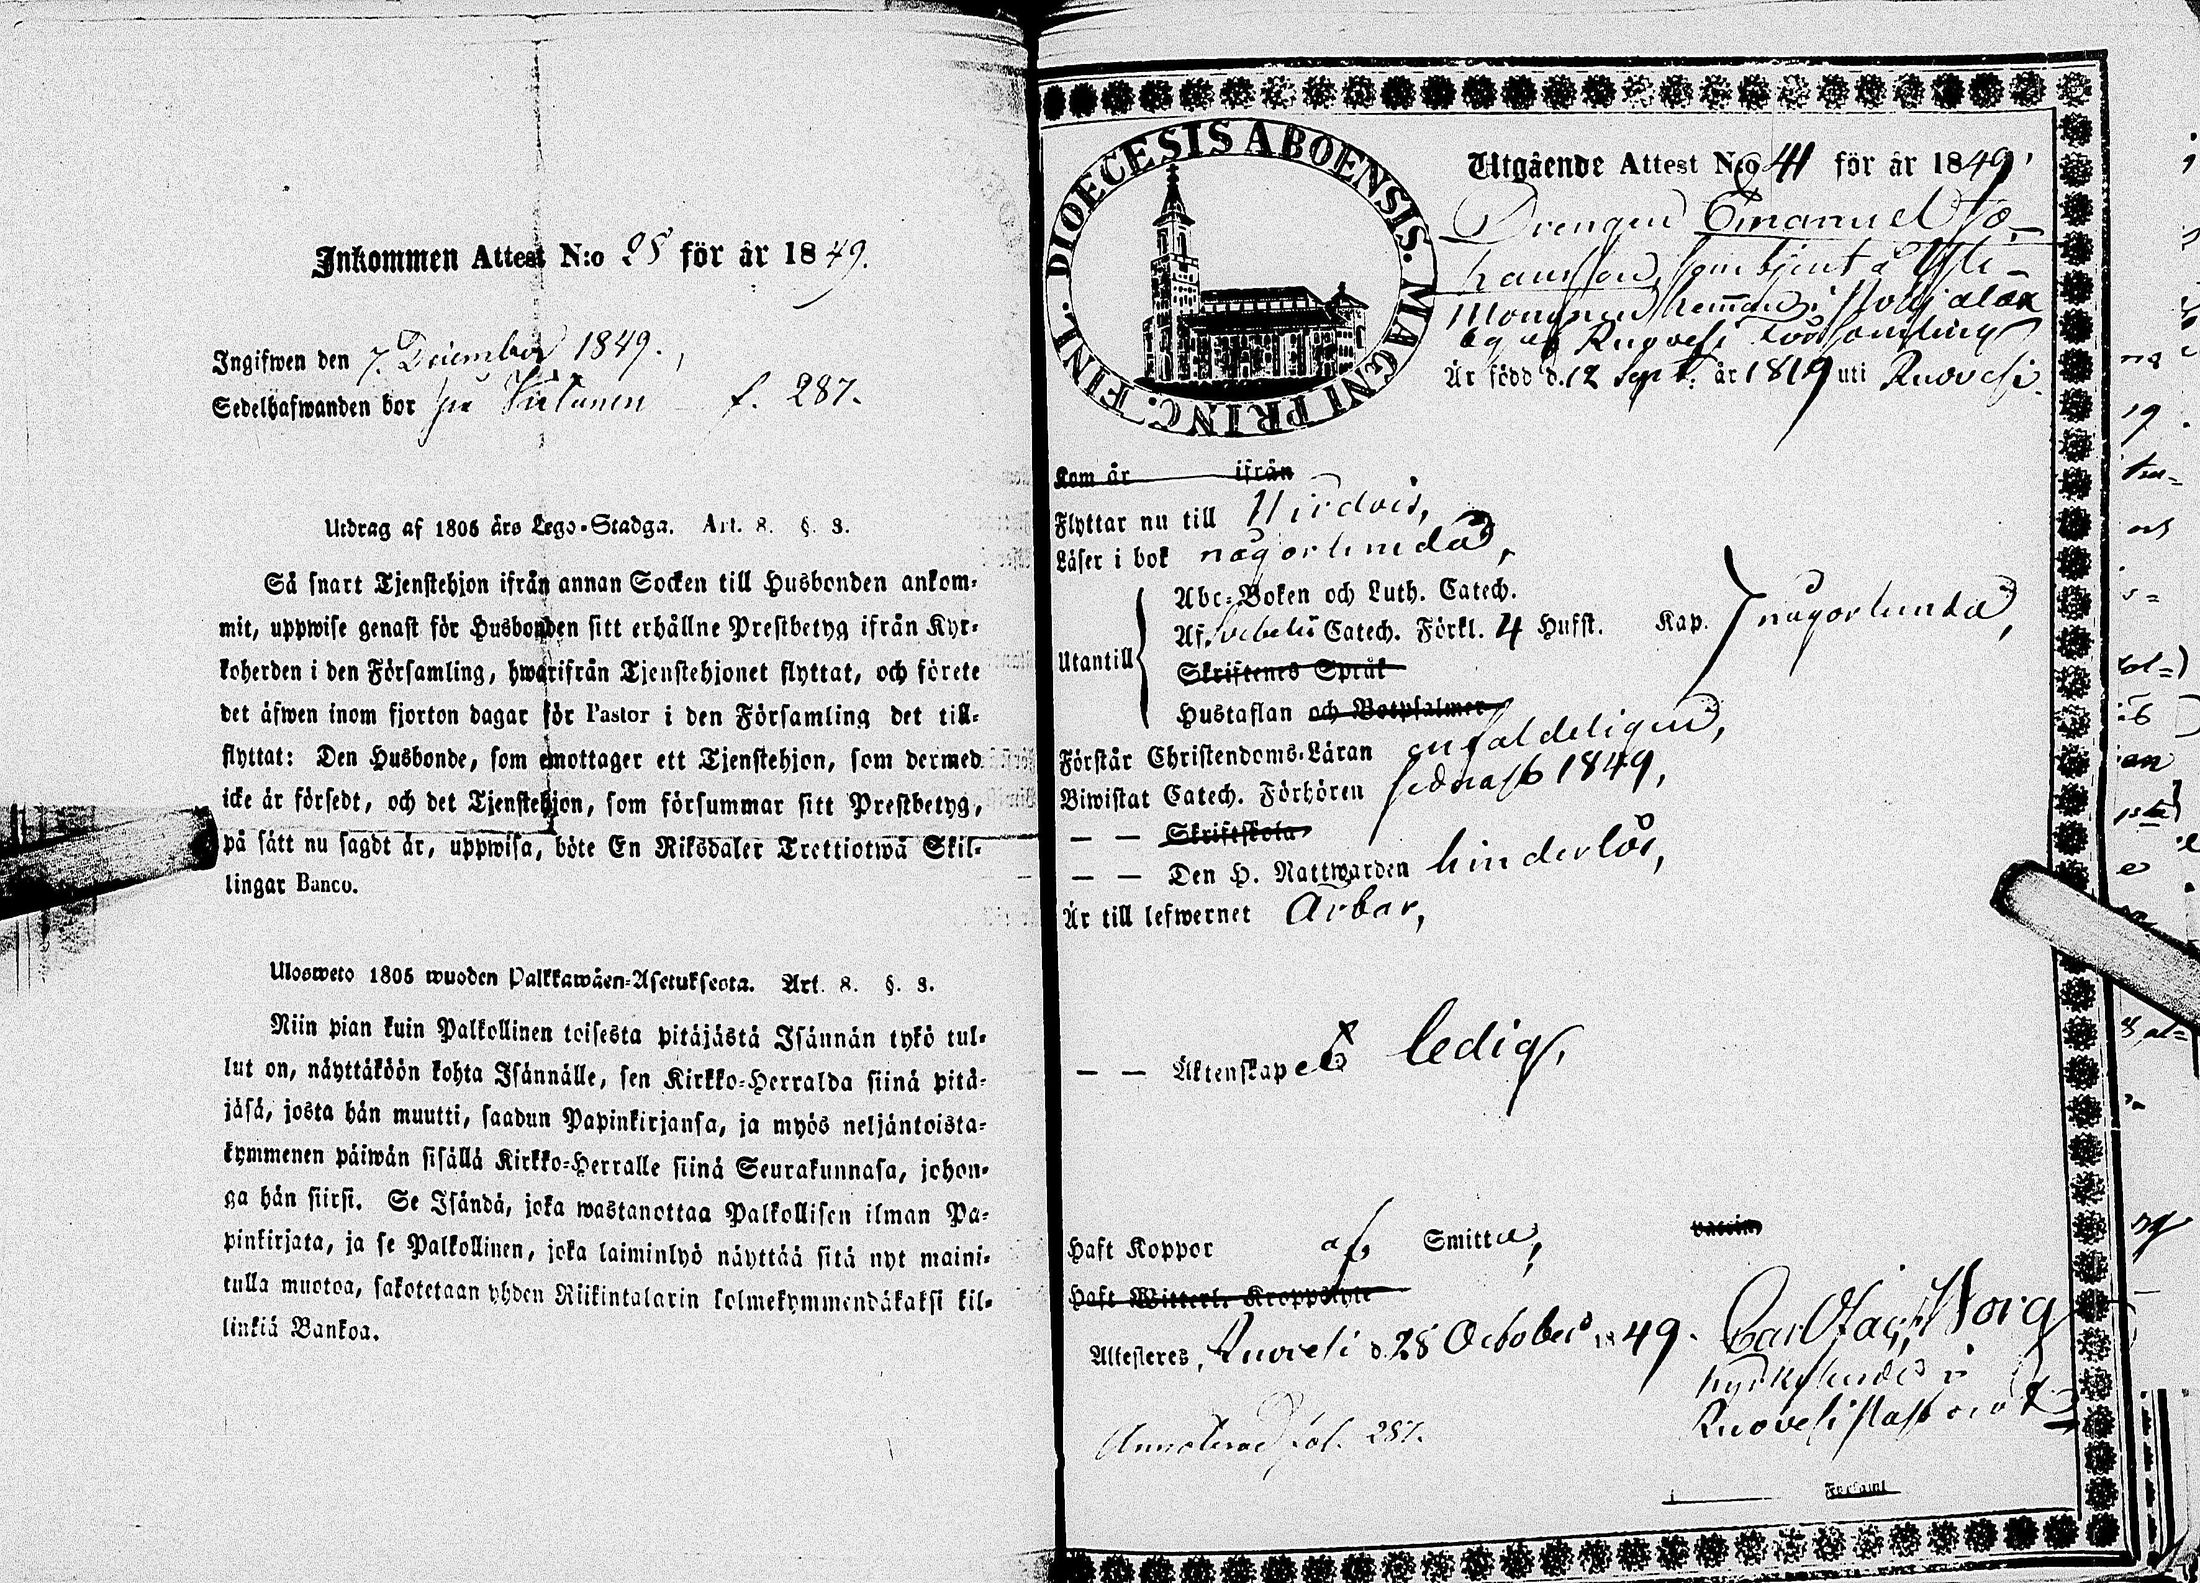 Inkommen Attest N:o 25 för år 1849.
Ingifwen den 7. December 1849.
Sedelhafwanden bor på f. 287.
Utdrag af 1805 års Lego-Stadga. Art. 8. §. 3.
Så snart Tjenstehjon ifrån annan Socken till Husbonden ankom-
mit, uppwise genast för Husbonden sitt erhållne Prestbetyg ifrån Kyr-
koherden i den Församling, hwarifrån Tjenstehjonet flyttat, och förete
det äfwen inom fjorton dagar för Pastor i den Församling det till-
flyttat: Den Husbonde, som emottager ett Tjenstehjon, som dermed
icke är försedt, och det Tjenstehjon, som försummar sitt Prestbetyg,
på sätt nu sagdt är, uppwisa, böte En Riksdaler Trettiotwå Skil-
lingar Banco.
Ulosweto 1805 wuoden Palkkawäen-Asetuksesta. Art. 8. §. 3.
Niin pian kuin Palkollinen toisesta pitäjästä Isännän tykö tul-
lut on, näyttäköön kohta Isännälle, sen Kirkko-Herralda siinä pitä-
jäsä, josta hän muutti, saadun Papinkirjansa, ja myös neljäntoista-
kymmenen päiwän sisällä Kirkko-Herralle siinä Seurakunnasa, johon-
ga hän siirsi. Se Isändä, joka wastanottaa Palkollisen ilman Pa-
pinkirjata, ja se Palkollinen, joka laiminlyö näyttää sitä nyt maini-
tulla muotoa, sakotetaan yhden Riikintalarin kolmekymmendäkaksi kil-
linkiä Bankoa.
DIOECESIS ABOENSIS. MAGNI PRINC. FINL.
Utgående Attest N:o 41 för år 1849,
Drengen Emanuel Jo-
hansson, som tjent å
hemman i Pohjalax
by af Ruovesi församling
Är född d. 12 Sept. år 1819 uti Ruovesi.
Kom år ifrån
Flyttar nu till Wirdois,
Läser i bok någorlunda,
Utantill
Abc-Boken och Luth. Catech.
Af Svebelii Catech. Förkl. 4 Hufst. Kap. någorlunda,
Skriftenes Språk
Hustaflan och Botpsalmer
Förstår Christendoms-Läran enfaldeligen,
Biwistat Catech. Förhören sednast 1849,
— — Skriftskola
— — Den H. Nattwarden hinderlös,
Är till lefwernet Ärbar,
— — Äktenskapet ledig,
Haft Koppor af Smitta, vaccin.
Haft Witterl. Kroppslyte
Attesteres, Ruovesi d. 28 October 1849. Carl Borg
Kyrkoherde i
Ruovesi
Annoterad fol. 287.
Församl